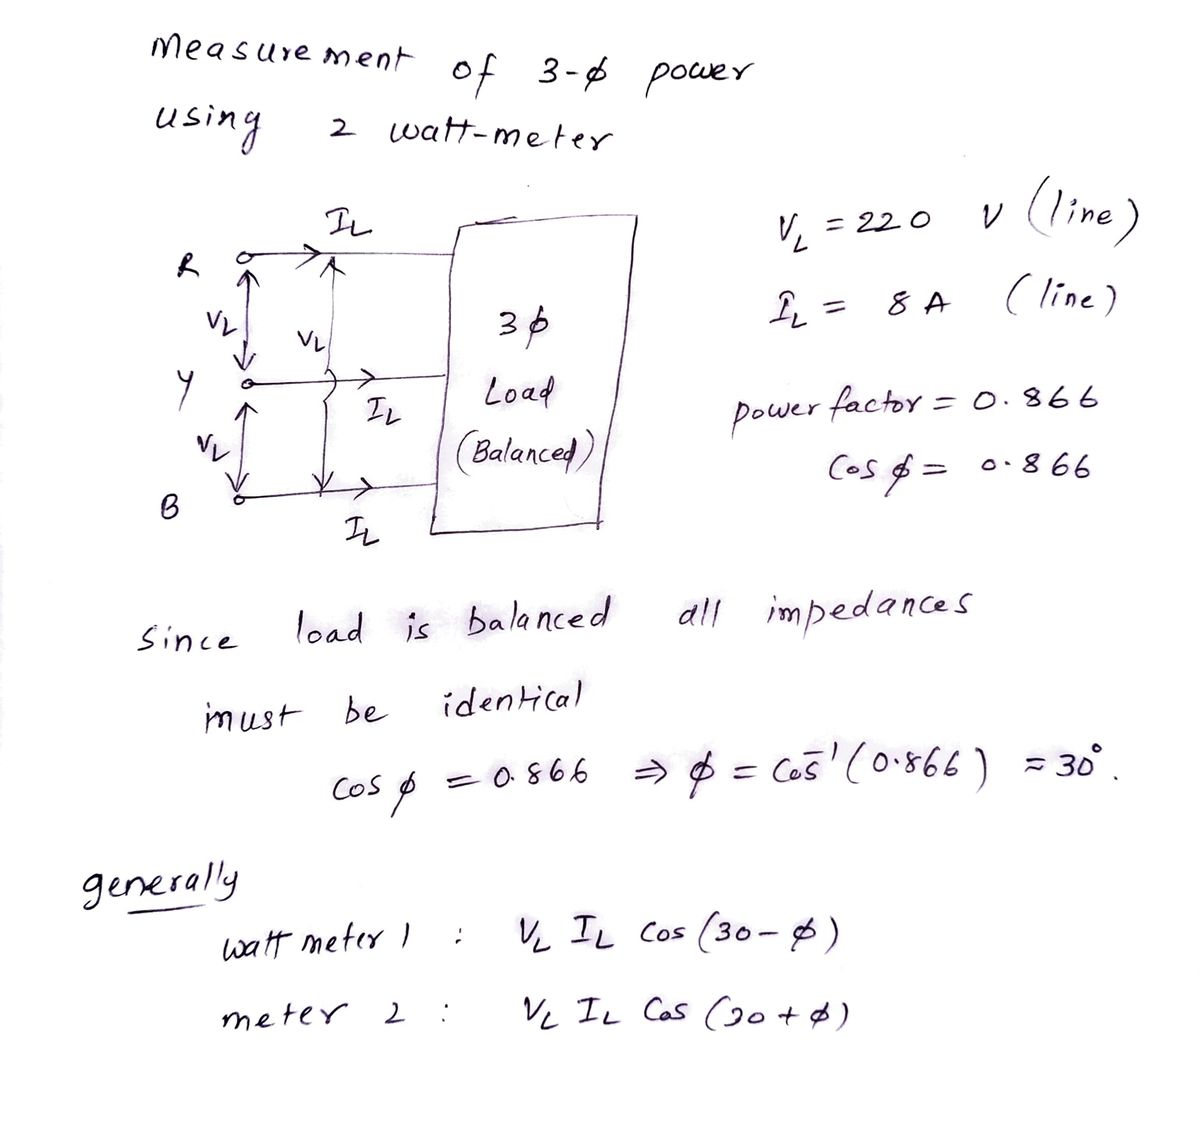 measurement of 3-ϕ power
using 2 watt-meter
IL
R
VL
VL
Y
IL
VL
B
IL
3ϕ
Load
(Balanced)
VL = 220 V (line)
IL = 8 A (line)
power factor = 0.866
Cos ϕ = 0.866
since load is balanced all impedances
must be identical
cos ϕ = 0.866 ⇒ ϕ = Cos⁻¹(0.866) = 30°.
generally
watt meter 1 : VL IL Cos (30-ϕ)
meter 2 : VL IL Cos (30+ϕ)